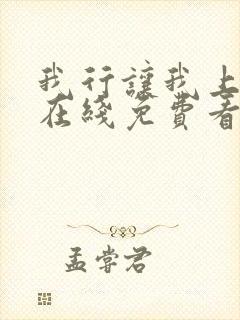 我行讓我上
在綫免費看
孟嘗君